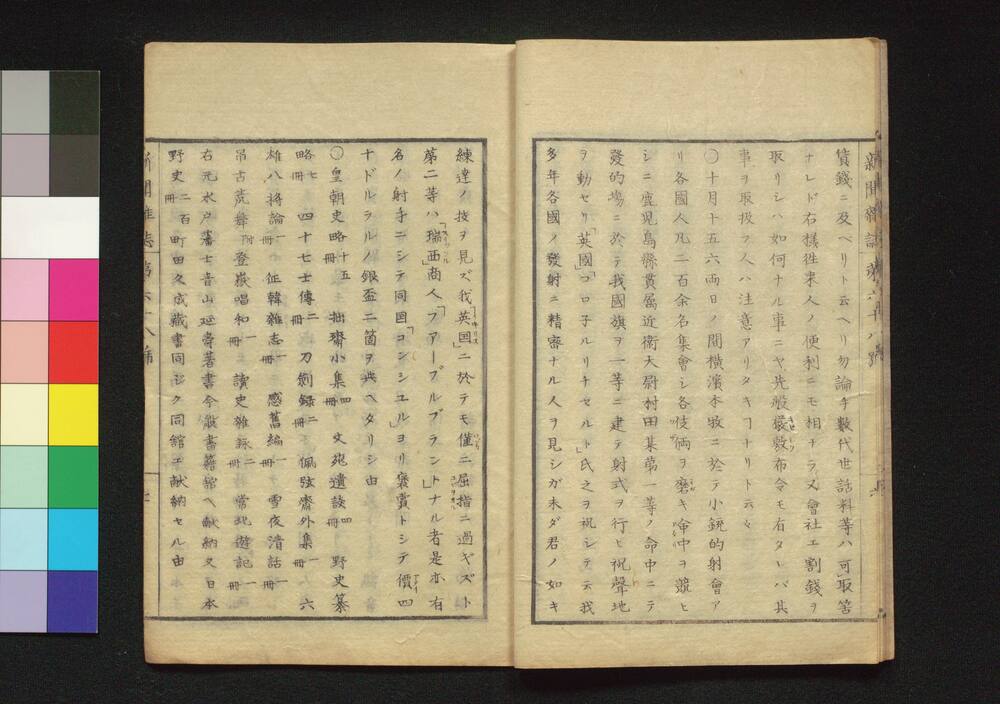 新聞雜誌第六十八號
賃錢ニ及ベリト云ヘリ勿論手數代世話料等ハ可取筈
ナレド右樣徃來人ノ便利ニモ相ナラズ又會社エ割錢ヲ
取リシハ如何ナル事ニヤ先般嚴敷布令モ有タレバ其
事ヲ取扱フ人ハ注意アリタキヿナリト云々
〇十月十五六兩日ノ間横濱本牧ニ於テ小銃的射會ア
リ各國人凡二百余名集會シ各伎倆ヲ磨キ命中ヲ競ヒ
シニ鹿児島縣貫属近衞大尉村田某第一等ノ命中ニテ
發的場ニ於テ我國旗ヲ一等ニ建テ射式ヲ行ヒ祝聲地
ヲ動セリ「英國」「コロ子ルリチセルト」氏之ヲ祝シテ云我
多年各國ノ發射ニ精密ナル人ヲ見シガ未ダ君ノ如キ
練達ノ技ヲ見ズ我「英国」ニ於テモ僅ニ屈指ニ過ギズト
第二等ハ「瑞西」商人「フアーブルブラント」ナル者是亦有
名ノ射手ニシテ同国「コンシユル」ヨリ褒賞トシテ價四
十ドルラルノ銀盃二箇ヲ與ヘタリシ由
〇皇朝史略十五冊 拙齋小集四冊 文苑遺談四冊 野史纂
略七冊 四十七士傳二冊 刀劍録二冊 佩弦齋外集一冊 六
雄八將論一冊 征韓雜志一冊 感舊編一冊 雪夜清話一冊
吊古荒舞附登嶽唱和一冊 讀史雜詠二冊 常北遊記一冊
右元水户藩士青山延壽著書今般書籍舘ヘ献納又日本
野史二百冊町田久成藏書同ジク同舘エ献納セル由
新聞雜誌第六十八號